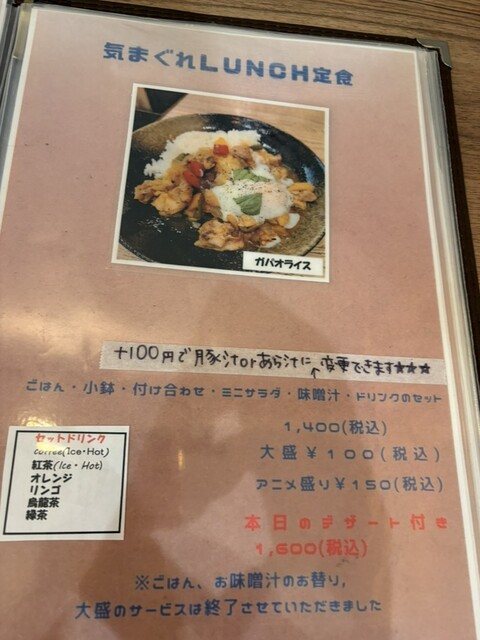 気まぐれLUNCH定食
ガパオライス
+100円で豚汁orあら汁に変更できます★★★
ごはん・小鉢・付け合わせ・ミニサラダ・味噌汁・ドリンクのセット
1,400(税込)
大盛￥100(税込)
アニメ盛り￥150(税込)
本日のデザート付き
1,600(税込)
セットドリンク
coffee(Ice・Hot)
紅茶(Ice・Hot)
オレンジ
リンゴ
烏龍茶
緑茶
※ごはん、お味噌汁のお替り,
大盛のサービスは終了させていただきました